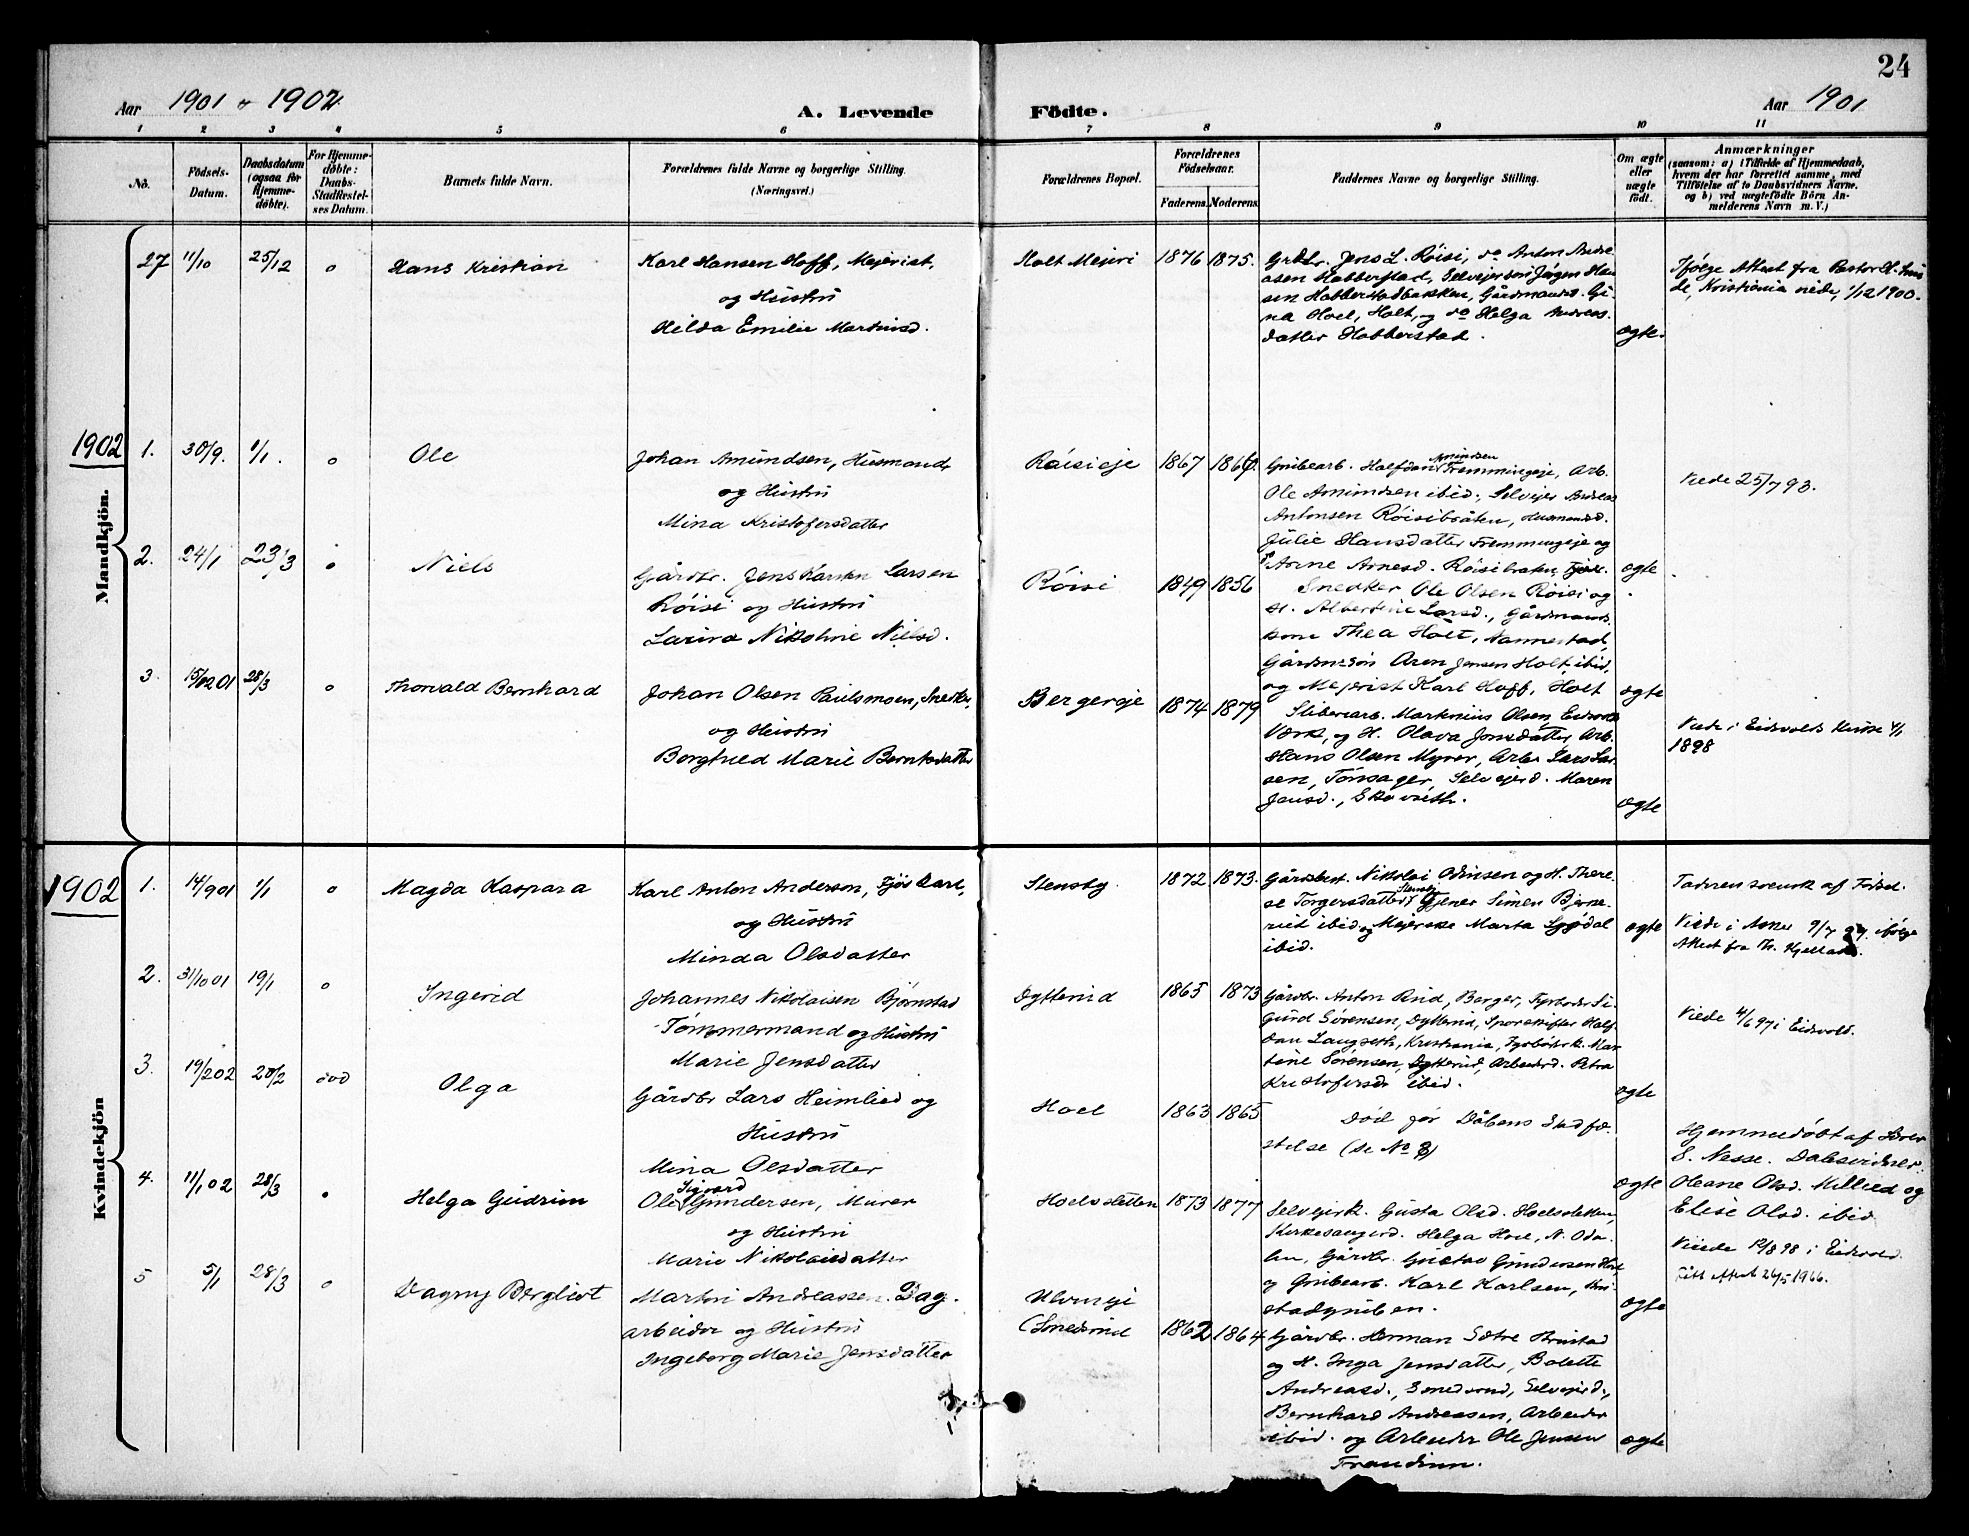 24
Aar 1901 & 1902
A. Levende
Födte.
Aar 1901
1 2 3 4 5 6 7 8 9 10 11
No.
Födsels-
Datum.
Daabsdatum
(ogsaa for
Hjemme-
døbte).
For Hjemme-
døbte:
Daabs-
Stadfæstel-
ses Datum.
Barnets fulde Navn.
Forældrenes fulde Navne og borgerlige Stilling.
(Næringsvei.)
Forældrenes Bopæl.
Forældrenes
Födselsaar.
Faderens. Moderens.
Faddernes Navne og borgerlige Stilling.
Om ægte
eller
uægte
födt.
Anmærkninger
(saasom: a) i Tilfælde af Hjemmedaab,
hvem der har forrettet samme, med
Tilføielse af to Daabsvidners Navne,
og b) ved uægtefödte Börn An-
melderens Navn m. V.)
27 11/10 25/12 o Hans Kristian
Karl Hansen Hoff, Mejerist,
og Hustru
Hilda Emilie Martinsd.
Holt Mejeri 1876 1875.
Grdbr. Jens L. Röisi, do Anton Andre-
asen Habberstad, Selvejersön Jörgen Han-
sen Habberstadbakken, Gårdmandsd. Gi-
na Hoel, Holt, og do Helga Andreas-
datter Habberstad.
ægte.
Ifölge Attest fra Pastor
Kristiania 1/12 1900.
1902
Mandkjön.
1. 30/9. 1/1. o Ole
Johan Amundsen, Husmand
og Hustru
Mina Kristofersdatter
Röisieje 1867
Grubearb. Halfdan Amundsen Fremmingeje, Arb.
Ole Amundsen ibid., Selvejer Andreas
Antonsen Röisibråten, Husmandsd.
Julie Hansdatter Fremmingeje og
Anne Arnesd. Röisibraten,
ægte
Viede 25/7 93.
2. 24/1 23/3 o Niels
Gårdbr. Jens Karsten Larsen
Röisi og Hustru
Larina Nikoline Nielsd.
Röisi 1849 1856
Snedker Ole Olsen Röisi og
H. Albertine Larsd., Gårdmands-
kone Thea Holt, Nannestad,
Gårdmdsön Aren Jensen Holt ibid.
og Mejerist Karl Hoff, Holt
ægte
3. 15/12 01 28/3 o Thorvald Bernhard
Johan Olsen Paulsmoen, Snedker,
og Hustru
Borghild Marie Berntsdatter
Bergereje 1874 1879
Sliberarb. Martinius Olsen, Eidsvolds
Værk, og H. Olava Jonsdatter, Arb.
Hans Olsen Myrer, Arb. Lars Lar-
sen, Tönsager, Selvejerd. Maren
Jensd.,
ægte
Viede i Eidsvolds Kirke
1898
1902
Kvindekjön
1. 14/9 01 1/1 o Magda Kaspara
Karl Anton Anderson, Fjöskarl,
og Hustru
Minda Olsdatter
Stensby 1872 1873.
Gårdbest. Nikolai Odinsen og H. There-
se Torgersdatter Stensby, Tjener Simen Bjerke-
rud ibid og Mejerske Marta
ibid.
ægte
Faderen svensk af Födsel.
Viede i Asker 9/7 ifölge
Attest fra
2. 31/10 01 19/1 o Ingerid
Johannes Nikolaisen Björnstad
Tömmermand og Hustru
Marie Jensdatter
Dytterud 1865 1873
Gårdbr. Anton Rud, Berger, Fyrböder Si-
gurd Sörensen, Dytterud, Sporskifter Half-
dan Langseth, Kristiania, Fyrböderk. Mar-
tine Sörensen, Dytterud, Arbeiderd. Petra
Kristofersd. ibid.
ægte
Viede 4/6 97 i Eidsvold.
3. 19/2 02 20/2 död Olga
Gårdbr Lars Heimlied og
Hustru
Mina Olsdatter
Hoel 1863 1865
Död för Dåbens Stadfæ-
stelse (se No 8)
ægte
Hjemmedöbt af
E. Nesse. Dabsvidner
Oleane Olsd. Millied og
Elise Olsd. ibid
4. 11/1 02 28/3 o Helga Gudrun
Ole Sigvard Gundersen, Murer
og Hustru
Marie Nikolaisdatter
Hoelssletten 1873 1877
Selvejerk. Gusta Olsd. Hoelssletten,
Kirkesangerd. Helga Hoel, N. Oda-
len, Gårdbr. Gustav Gundersen Hoel
og Grubearb. Karl Karlsen,
ægte
Viede 12/8 98 i Eidsvold.
Födt Attest 26/5 1966.
5 5/1 28/3 o Dagny Bergliot
Martin Andreassen. Dag-
arbeider og Hustru
Ingeborg Marie Jensdatter
(Smedsrud 1862 1864
Gårdbr. Herman Sætre
og H. Inga Jensdatter, Bolette
Andreasd., Smedsrud, Selvejerd.,
Bernhard Andreasen, Arbeider
ibid. og Arbeider Ole Jensen
ægte